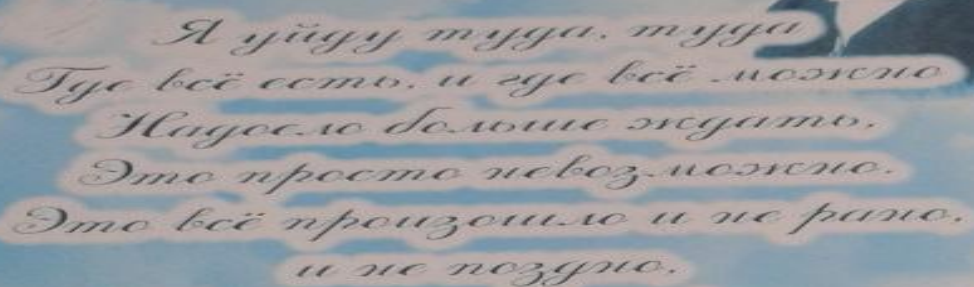 Я уйду туда, туда
Где всё есть, и где всё можно
Надоело больше ждать,
Это просто невозможно.
Это всё произошло и не рано,
и не поздно.